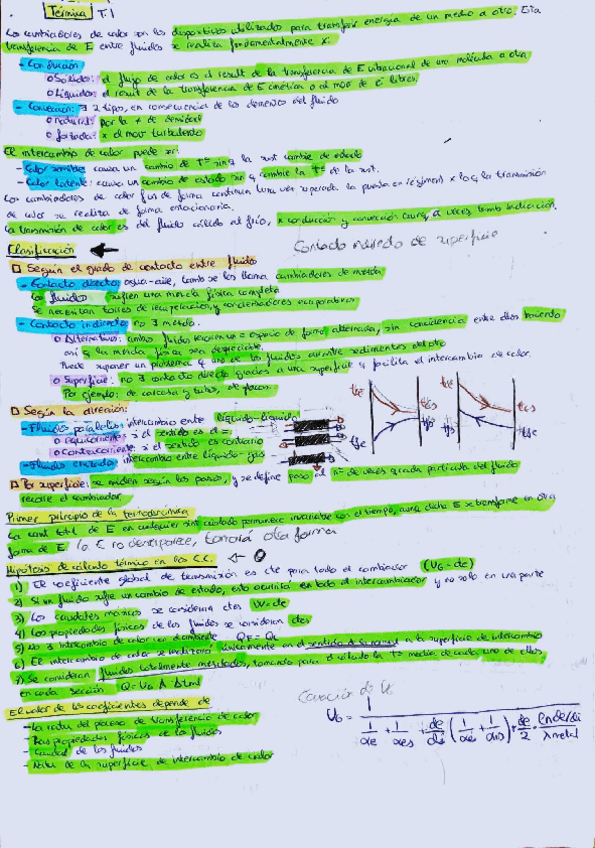 Térmica T.1
Los cambiadores de calor son los dispositivos utilizados para transferir energía de un medio a otro. Esta
transferencia de E entre fluidos se realiza fundamentalmente x:
- Conducción
o Sólidos: el flujo de calor es el result de la transferencia de E vibracional de una molécula a otra
o Líquidos: el result de la transferencia de E cinética o al mov de e- libres.
- Convección: ∃ 2 tipos, en consecuencia de los elementos del fluido
o natural: por la ≠ de densidad
o forzada: x el mov turbulento
El intercambio de calor puede ser:
- Calor sensible: causa un cambio de Tª sin q la sust cambie de estado
- Calor latente: causa un cambio de estado sin q cambie la Tª de la sust.
Los cambiadores de calor de forma continua una vez superada la puesta en régimen x lo q la transmisión
de calor se realiza de forma estacionaria.
La transmisión de calor es del fluido cálido al frío, x conducción y convección a veces, tamb radiación.
Clasificación
Contacto de superficie
Según el grado de contacto entre fluido
- Contacto directo: agua-aire, tamb se les llama cambiadores de mezcla
Los fluidos sufren una mezcla física completa
Se necesitan torres de recuperación, y condensadores evaporativos
- Contacto indirecto: no ∃ mezcla.
o Alternativos: ambos fluidos recorren un = espacio de forma alternada, sin coincidencia entre ellos haciendo
así q la mezcla física sea despreciable.
Puede suponer un problema q uno de los fluidos arrastre sedimentos del otro
o Superficie: no ∃ contacto directo gracias a una superficie q facilita el intercambio de calor.
Por ejemplo: de carcasa y tubos, de placas.
Según la dirección:
- Fluidos paralelos: intercambio entre líquido-líquido
o equicorriente: si el sentido es el =
o contracorriente: si el sentido es contrario
- Fluidos cruzados: intercambio entre líquido-gas
Por superficie: se miden según los pasos, y se define paso al nº de veces q cada partícula del fluido
recorre el cambiador.
Primer principio de la termodinámica
La cant total de E en cualquier sist aislado permanece invariable con el tiempo, aunq dicha E se transforme en otra
forma de E. la E no desaparece, tomará otra forma
Hipótesis de cálculo térmico en los C.C.
1) El coeficiente global de transmisión es cte para todo el cambiador (UG = cte)
2) Si un fluido sufre un cambio de estado, esto ocurrirá en todo el intercambiador y no solo en una parte
3) Los caudales másicos se consideran ctes W=cte
4) Las propiedades físicas de los fluidos se consideran ctes
5) No ∃ intercambio de calor con el ambiente QF = QC
6) El intercambio de calor se realizará únicamente en el sentido de la normal a la superficie de intercambio
7) Se consideran fluidos totalmente mezclados, tomando para el cálculo la Tª media de cada uno de ellos,
en cada sección Q = UG · A · Δtml
El valor de los coeficientes depende de
Ecuación de UG
- La natu del proceso de transferencia de calor
- Las propiedades físicas de los fluidos
- Caudal de los fluidos
- Natu de la superficie de intercambio de calor